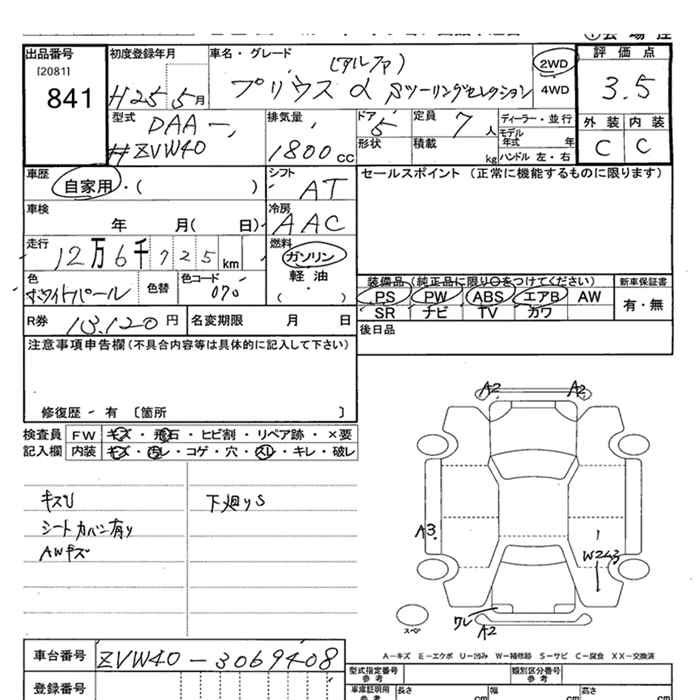 出品番号
[2081]
841
初度登録年月
H25 5月
車名・グレード
(アルファ)
プリウス α Sツーリングセレクション
2WD
4WD
評価点
3.5
外装 内装
C C
型式
DAA-
ZVW40
排気量
1800cc
ドア
5
形状
定員
7人
積載
kg
ディーラー・並行
モデル
年式 年
ハンドル 左・右
車歴
自家用・( )
シフト
AT
セールスポイント (正常に機能するものに限ります)
車検
年 月( 日)
冷房
AAC
走行
12万6千725km
燃料
ガソリン
軽油
( ・ )
色
ホワイトパール
色替
色コード
070
装備品(純正品に限り○をつけてください)
PS PW ABS エアB AW
SR ナビ TV カワ
新車保証書
有・無
R券 13,120円
名変期限 月 日
後日品
注意事項申告欄(不具合内容等は具体的に記入して下さい)
修復歴-有 〔箇所 〕
検査員
記入欄
FW キズ・飛石・ヒビ割・リペア跡・×要
内装 キズ・汚レ・コゲ・穴・スレ・キレ・破レ
キズU
シートカバー有り
AWキズ
下廻りS
A2 A2
A3
W2
ワレ
A2
スペア
A-キズ E-エクボ U-凹み W-補修跡 S-サビ C-腐食 XX-交換済
車台番号 ZVW40-3069408
登録番号
型式指定番号
参考
類別区分番号
参考
車庫証明用
参考
長さ cm
幅 cm
高さ cm